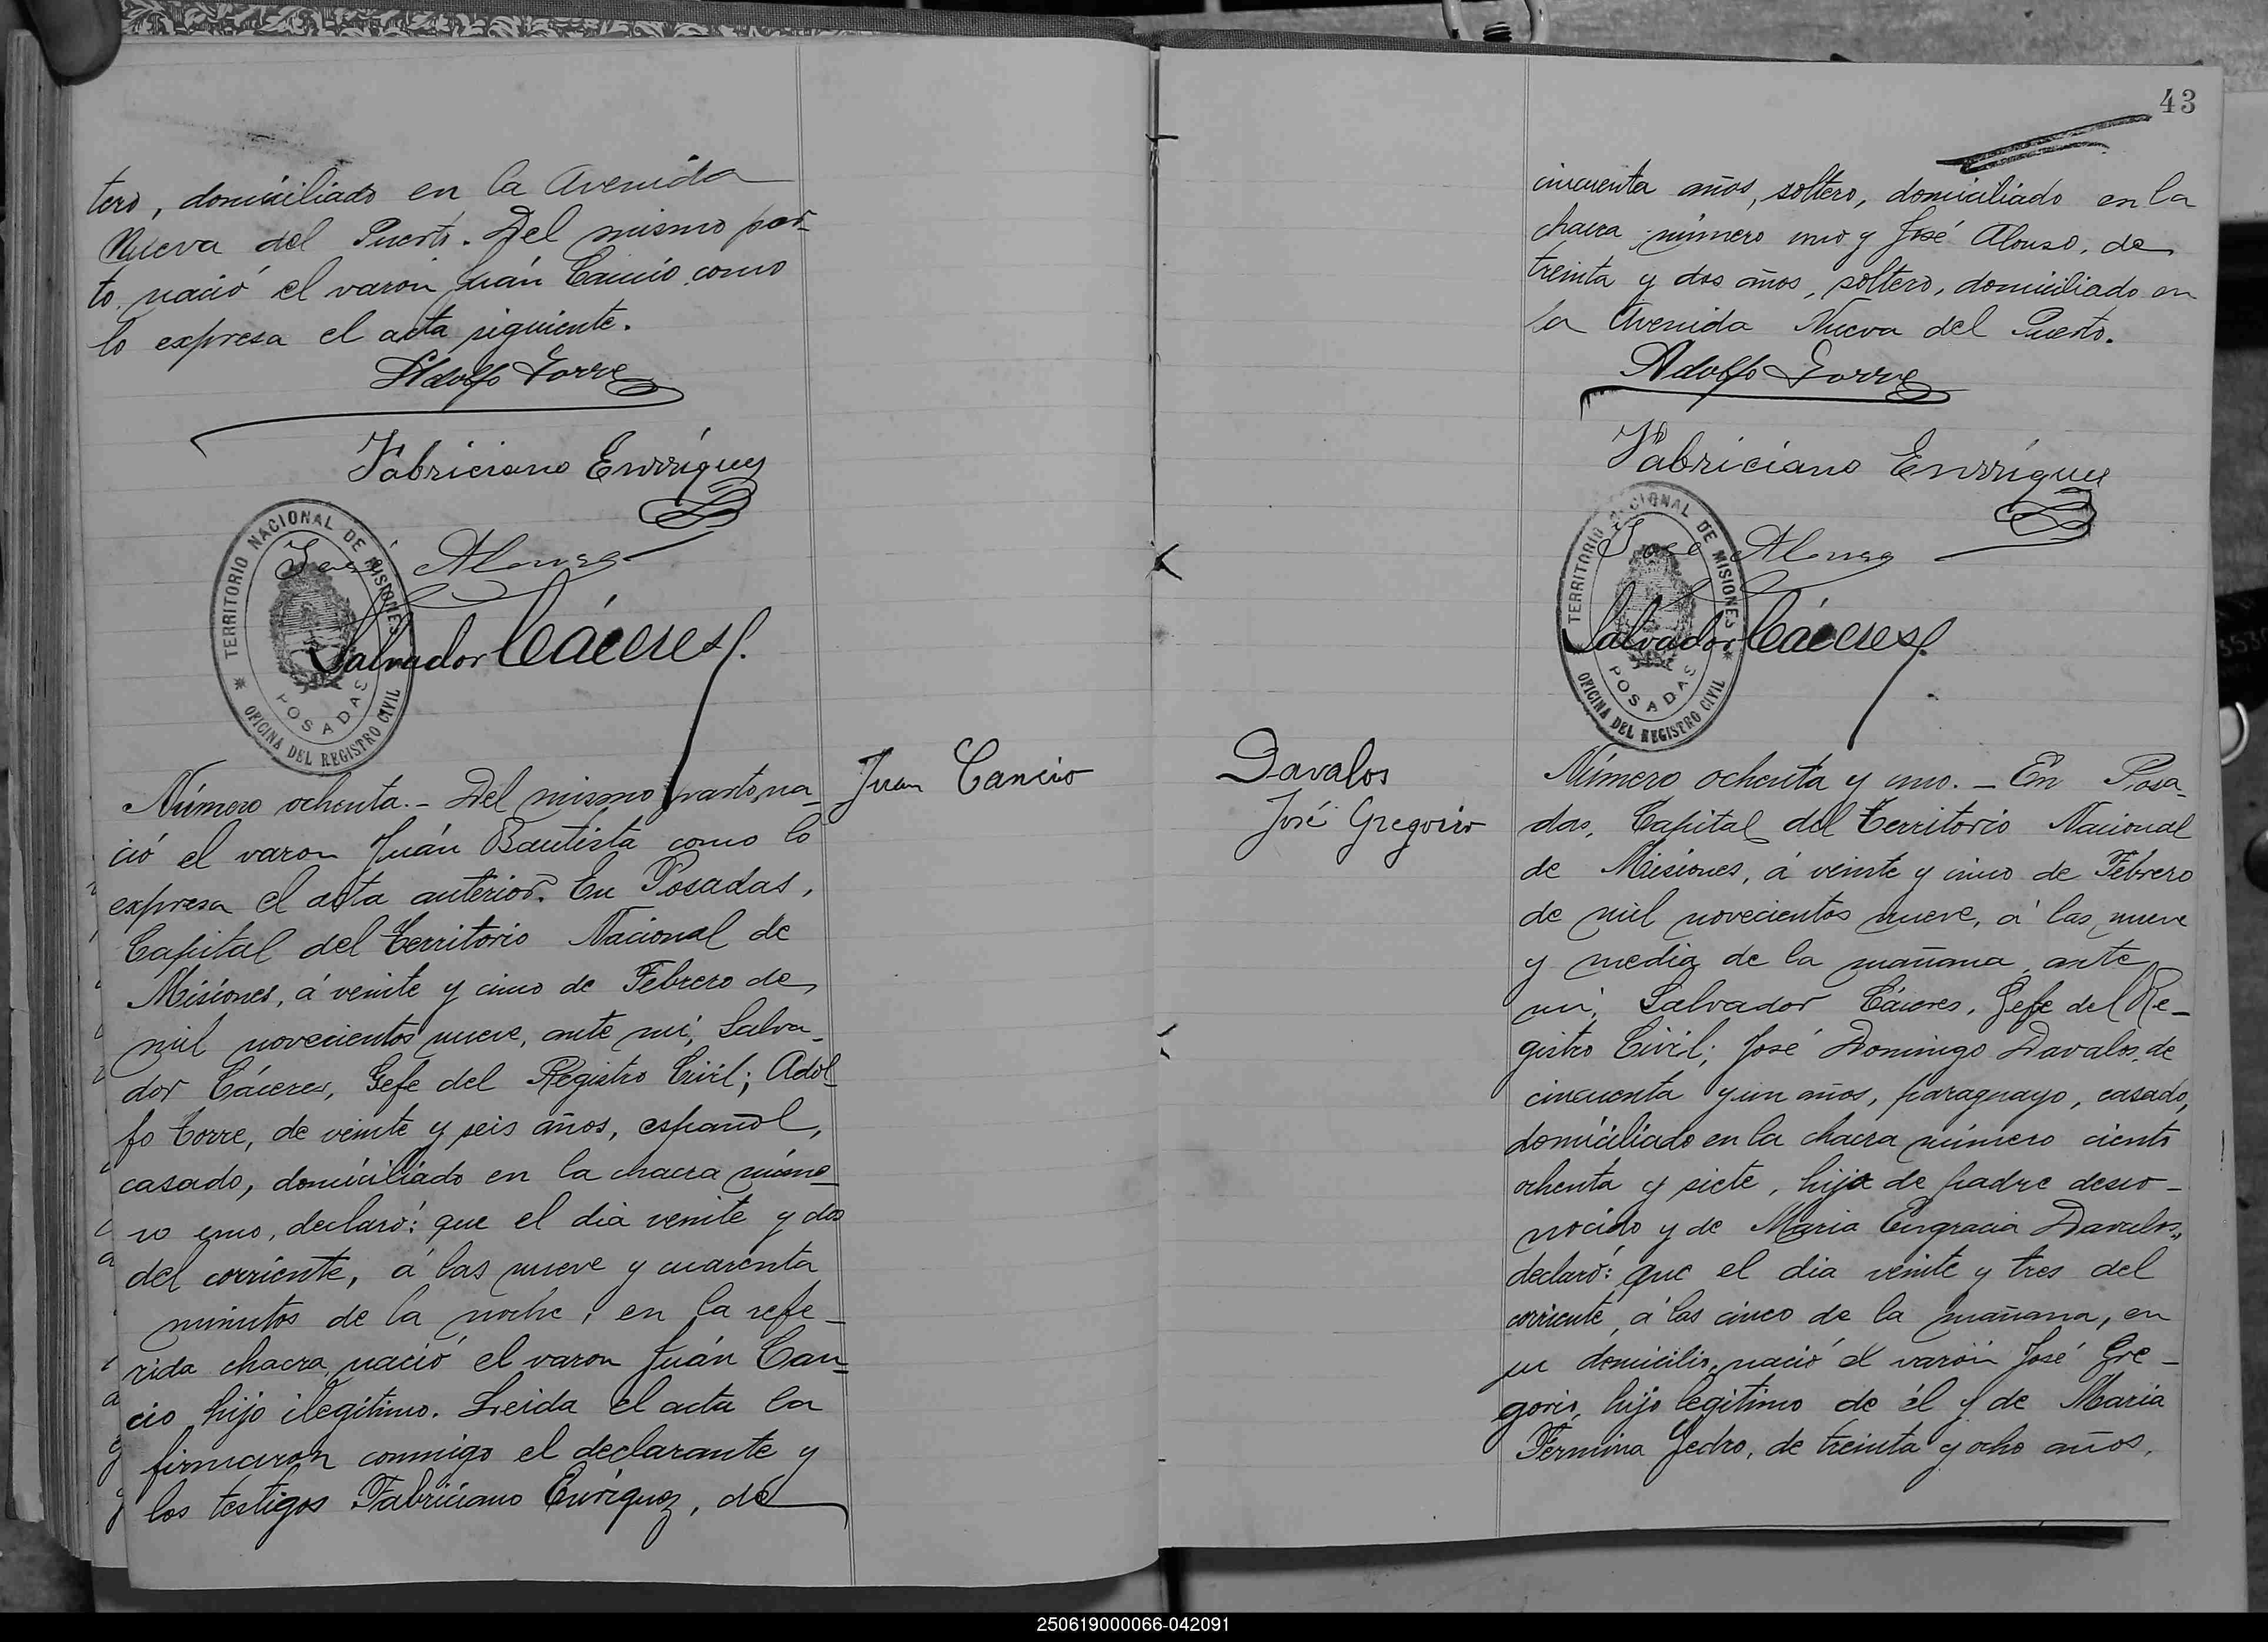 tero, domiciliado en la Avenida
Nueva del Puerto. Del mismo par-
to, nació el varon Juán Cancio como
lo expresa el acta siguiente.
Adolfo Torre
Fabriciano Enrríquez
José Alonso
TERRITORIO NACIONAL DE MISIONES
POSADAS
OFICINA DEL REGISTRO CIVIL
Salvador Cáceres
Juan Cancio
Número ochenta.- Del mismo parto, na-
ció el varon Juán Bautista como lo
expresa el acta anterior. En Posadas,
Capital del Territorio Nacional de
Misiones, á veinte y cinco de Febrero de
mil novecientos nueve, ante mí, Salva-
dor Cáceres, Gefe del Registro Civil; Adol-
fo Torre, de veinte y seis años, español,
casado, domiciliado en la chacra núme-
ro uno, declaró: que el dia veinte y dos
del corriente, á las nueve y cuarenta
minutos de la noche, en la refe-
rida chacra, nació el varon Juán Can-
cio, hijo ilegítimo. Leida el acta la
firmaron conmigo el declarante y
los testigos Fabriciano Enríquez, de
43
cincuenta años, soltero, domiciliado en la
chacra número uno y José Alonso, de
treinta y dos años, soltero, domiciliado en
la Avenida Nueva del Puerto.
Adolfo Torre
Fabriciano Enrríquez
José Alonso
TERRITORIO NACIONAL DE MISIONES
POSADAS
OFICINA DEL REGISTRO CIVIL
Salvador Cáceres
Davalos
José Gregorio
Número ochenta y uno. - En Posa-
das, Capital del Territorio Nacional
de Misiones, á veinte y cinco de Febrero
de mil novecientos nueve, á las nueve
y media de la mañana, ante
mí, Salvador Cáceres, Gefe del Re-
gistro Civil; José Domingo Davalos, de
cincuenta y un años, paraguayo, casado,
domiciliado en la chacra número ciento
ochenta y siete, hijo de padre desco-
nocido y de Maria Engracia Davalos,
declaró: que el dia veinte y tres del
corriente, á las cinco de la mañana, en
su domicilio, nació el varón José Gre-
gorio, hijo legítimo de él y de Maria
Fermina Jedro, de treinta y ocho años,
250619000066-042091